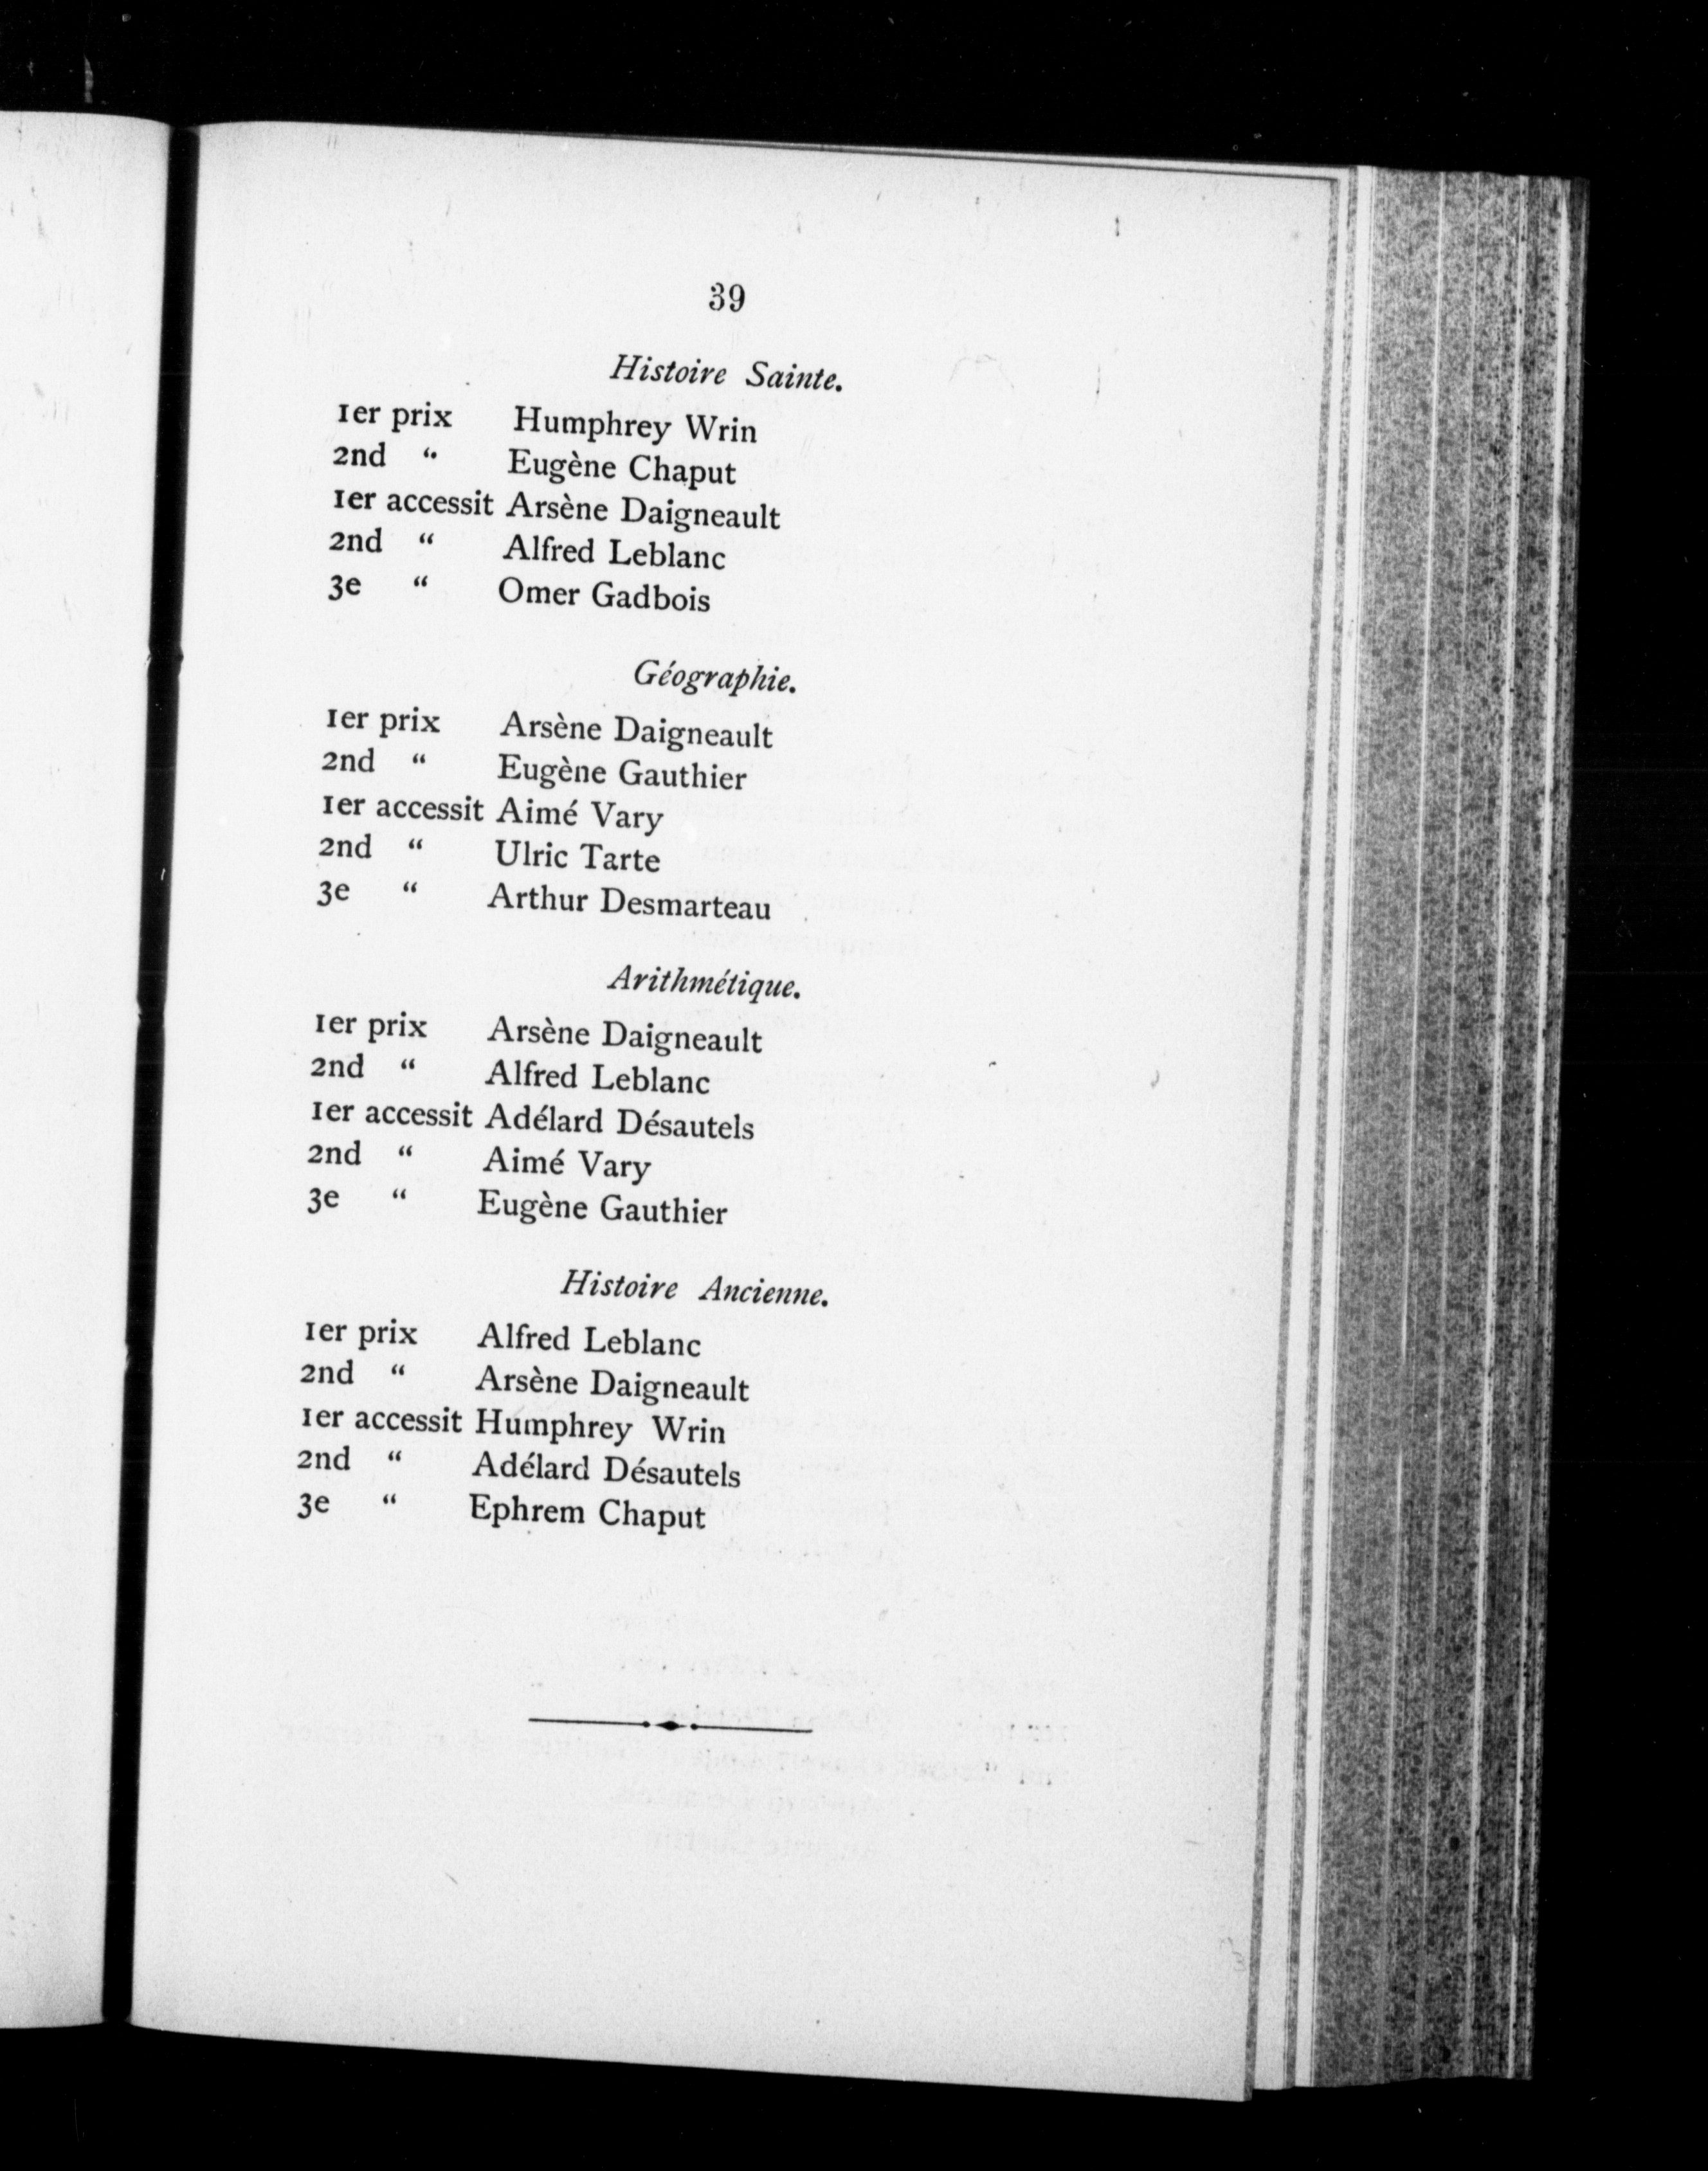 39
Histoire Sainte.
1er prix Humphrey Wrin
2nd “ Eugène Chaput
1er accessit Arsène Daigneault
2nd “ Alfred Leblanc
3e “ Omer Gadbois
Géographie.
1er prix Arsène Daigneault
2nd “ Eugène Gauthier
1er accessit Aimé Vary
2nd “ Ulric Tarte
3e “ Arthur Desmarteau
Arithmétique.
1er prix Arsène Daigneault
2nd “ Alfred Leblanc
1er accessit Adélard Désautels
2nd “ Aimé Vary
3e “ Eugène Gauthier
Histoire Ancienne.
1er prix Alfred Leblanc
2nd “ Arsène Daigneault
1er accessit Humphrey Wrin
2nd “ Adélard Désautels
3e “ Ephrem Chaput